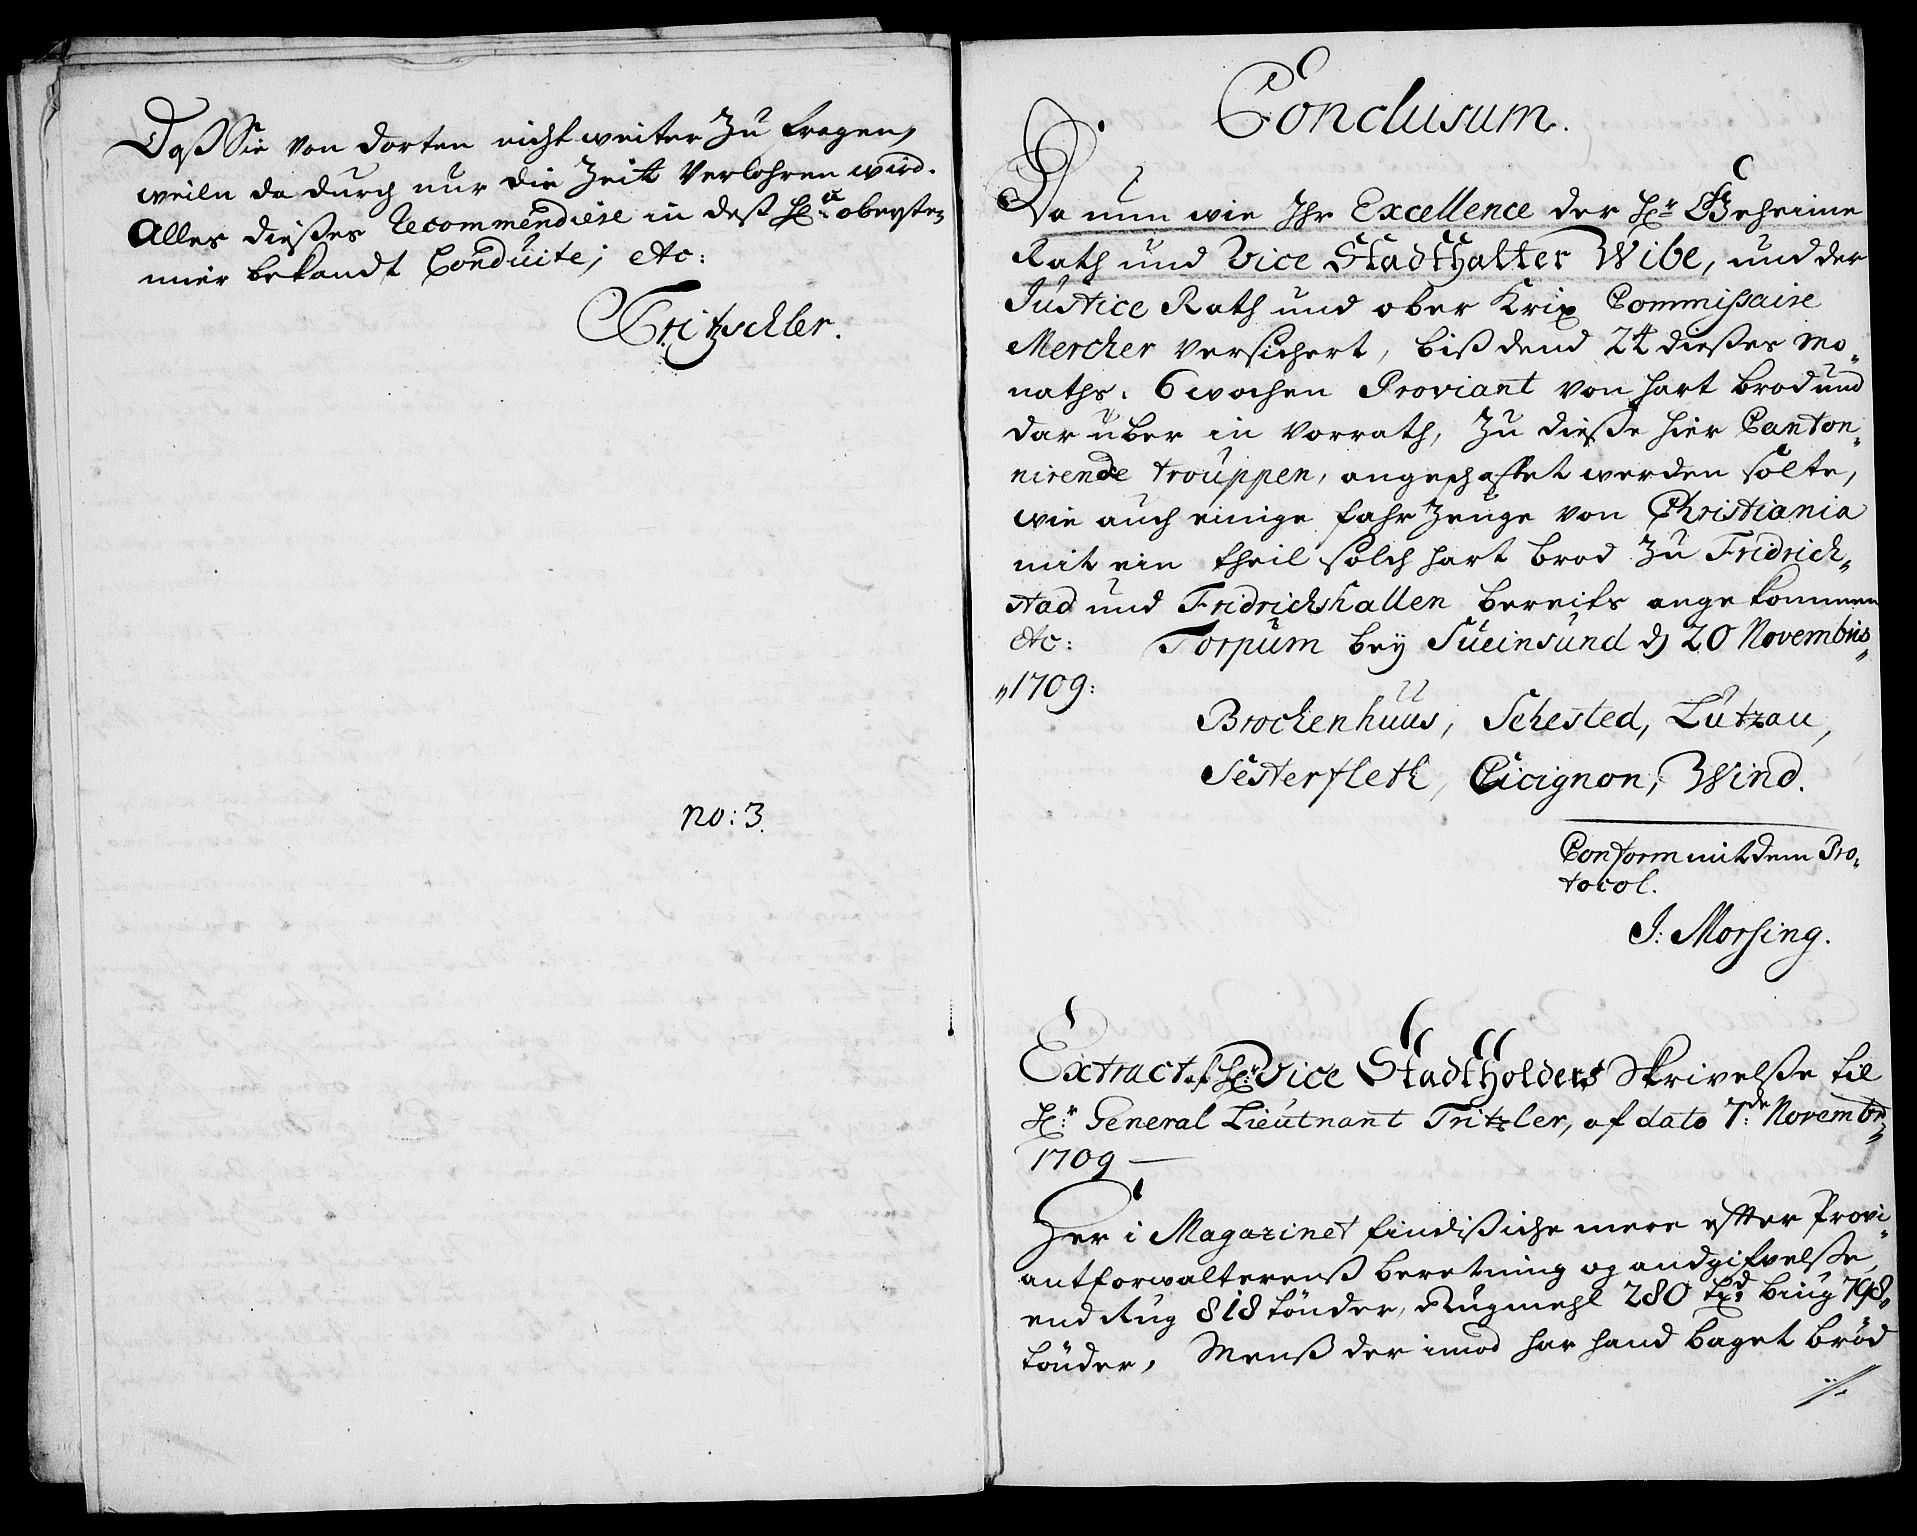 Daß Sie von dorten nicht weiter zu fragen,
weiln da durch nur die Zeit verlohren wird.
Alles dießes Recommendiere in deß Hr: obersten
mier bekandt Conduite; etc:
Tritzschler.
no: 3.
Conclusum.
Da nun wie Ihr Excellence der Hr Geheime
Rath und Vice Stadthalter Wibe, und der
Justice Rath und ober Krix Commissaire
Mercker versichert, biß dend 24 dießes mo„
naths. 6 wochen Proviant von hart brod und
dar über in vorrath, zu dieße hier Canton„
nirende trouppen, angeschaffet werden solte,
wie auch einige fahr zeuge von Christiania
mit ein theil solch hart brod zu Fridrich„
stad und Fridrichshallen bereits ange kommen
etc: Torpum bey Sueinsund d 20 Novembris
„1709:
Brockenhuus, Sehested, Lützau,
Sesterfleth, Cicignon, Wind.
Conform mit dem Pro„
tocol.
J: Morsing.
Extract af Hr: Vice Stadtholders Skrivelße til
Hr: General Lieutnant Tritzler, af dato 7de: Novembr:
1709 —
Her i Magazinet findis iche mere efter Provi„
antforwalterenß beretning og andgifvelße,
end Rug 818 tönder, Rugmehl 280 tdr: biug 798„
tönder, Menß der imod har hand baget bröd